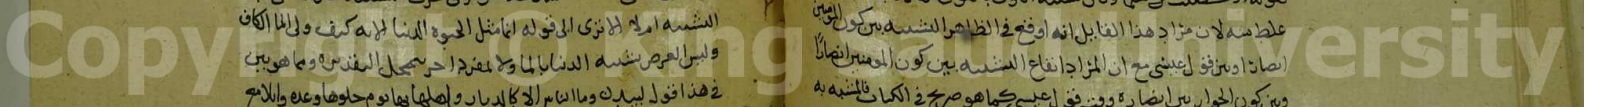 غلط منه لان مراد هذا القايل انه اوقع في الظاهر التشبيه بين كون المؤمنين
انصارا وبين قول عيسى مع ان المراد ايقاع التشبيه بين كون المؤمنين انصارا
وبين كون الحواريين انصاره وقت قول عيسى كما هو صريح في الكتاب فالمشبه به
التشبيه ام لا الا ترى الى قوله انما مثل الحيوة الدنيا الاية كيف ولى الماء الكاف
وليس الغرض تشبيه الدنيا بالماء ولا بمفرد اخر يتمحل لتقديره ومما هو بين
في هذا قول لبيد وما الناس الا كالديار واهلها بها يوم حلوها وغدوا بلاقع
Copyright © King Saud University